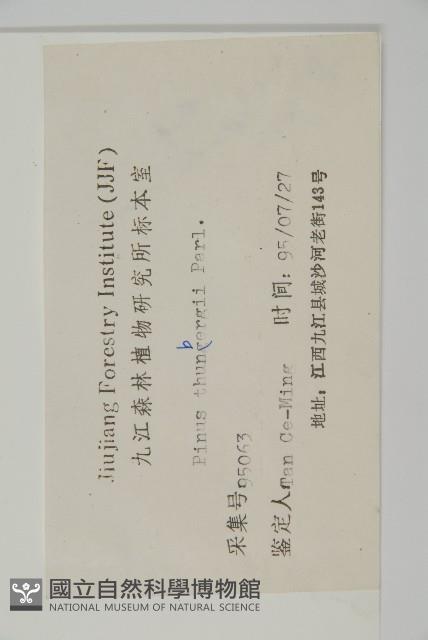 Jiujiang Forestry Institute (JJF)
九江森林植物研究所标本室
b
Pinus thungergii Parl.
采集号95063
鉴定人Tan Ce-Ming 时间: 95/07/27
地址: 江西九江县城沙河老街143号
國立自然科學博物館
NATIONAL MUSEUM OF NATURAL SCIENCE